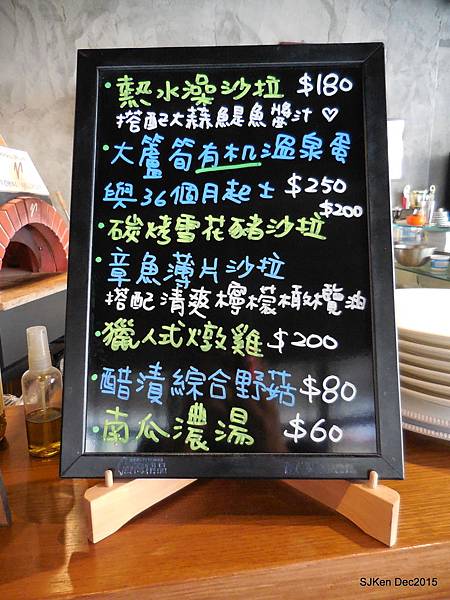 ・熱水澡沙拉 $180
搭配大蒜鯷魚醬汁♡
・大蘆筍有机溫泉蛋
與36個月起士 $250
$200
・碳烤雪花豬沙拉
・章魚薄片沙拉
搭配清爽檸檬橄欖油
・獵人式燉雞 $200
・醋漬綜合野菇 $80
・南瓜濃湯 $60
SJKen Dec2015